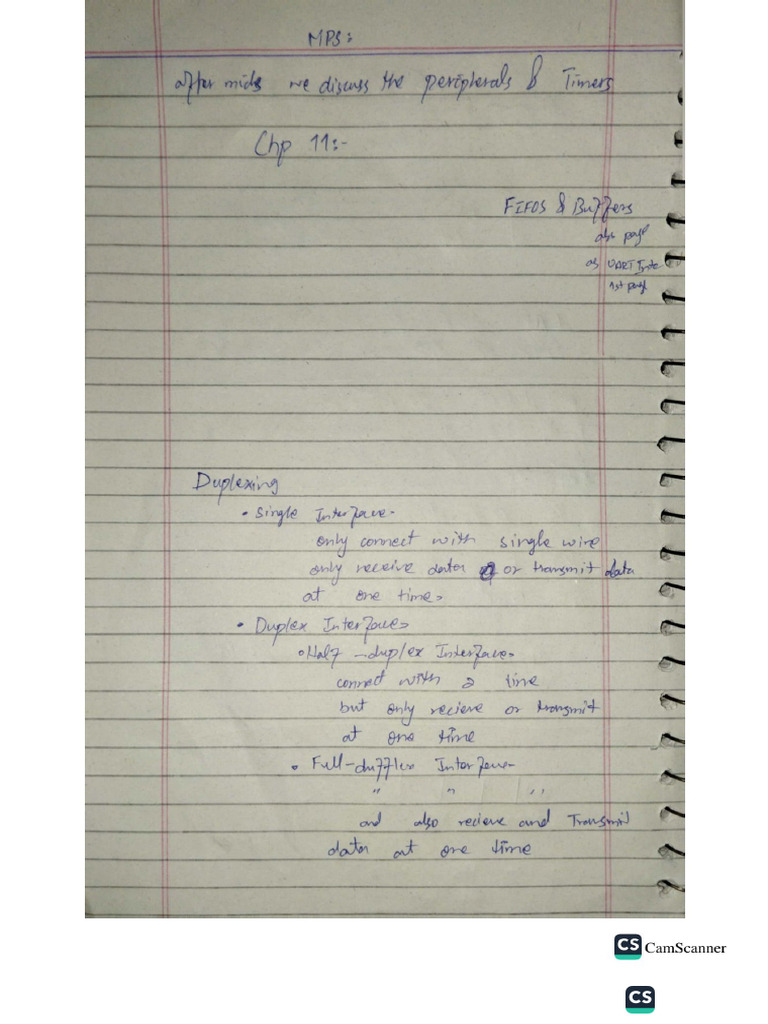 MPS:
after mids we discuss the peripherals & Timers
Chp 11:-
FIFOS & Buffers
also page
as UART Inte
1st page
Duplexing
• Single Interface-
only connect with single wire
only receive data or transmit data
at one time.
• Duplex Interface
• Half-duplex Interface-
connect with 2 line
but only recieve or transmit
at one time
• Full-dufflex Interface-
" " "
and also recieve and Transmit
data at one time
CS CamScanner
CS